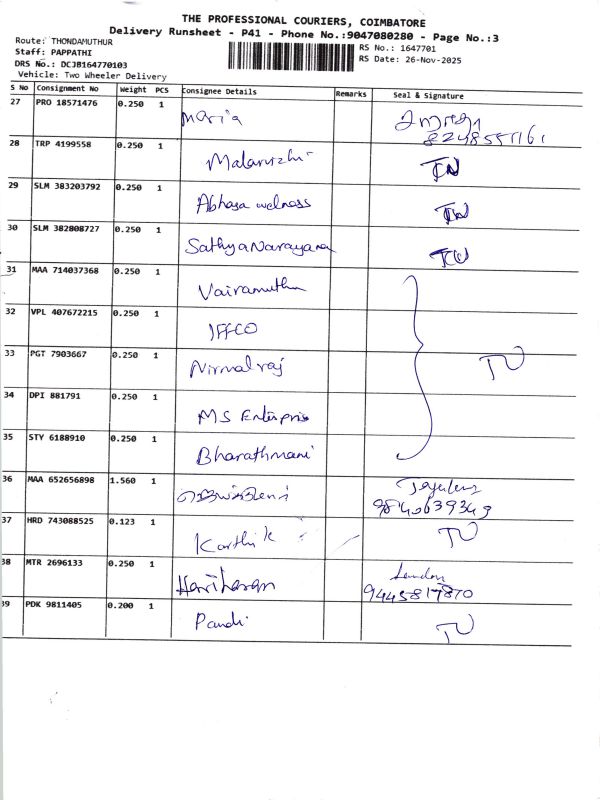 THE PROFESSIONAL COURIERS, COIMBATORE
Delivery Runsheet - P41 - Phone No.:9047080280 - Page No.:3
Route: THONDAMUTHUR
Staff: PAPPATHI
DRS No.: DCJB164770103
Vehicle: Two Wheeler Delivery
RS No.: 1647701
RS Date: 26-Nov-2025
S No Consignment No Weight PCS Consignee Details Remarks Seal & Signature
27 PRO 18571476 0.250 1 Maria
28 TRP 4199558 0.250 1 Malarvizhi
29 SLM 383203792 0.250 1 Abhasa welness
30 SLM 382808727 0.250 1 Sathya Narayana
31 MAA 714037368 0.250 1 Vairamuthu
32 VPL 407672215 0.250 1 IFFCO
33 PGT 7903667 0.250 1 Nirmal raj TU
34 DPI 881791 0.250 1 MS Enterprise
35 STY 6188910 0.250 1 Bharathmani
36 MAA 652656898 1.560 1
9840639349
37 HRD 743088525 0.123 1 Karthik TU
38 MTR 2696133 0.250 1 Hariharan
9445817870
39 PDK 9811405 0.200 1 Pandi TU